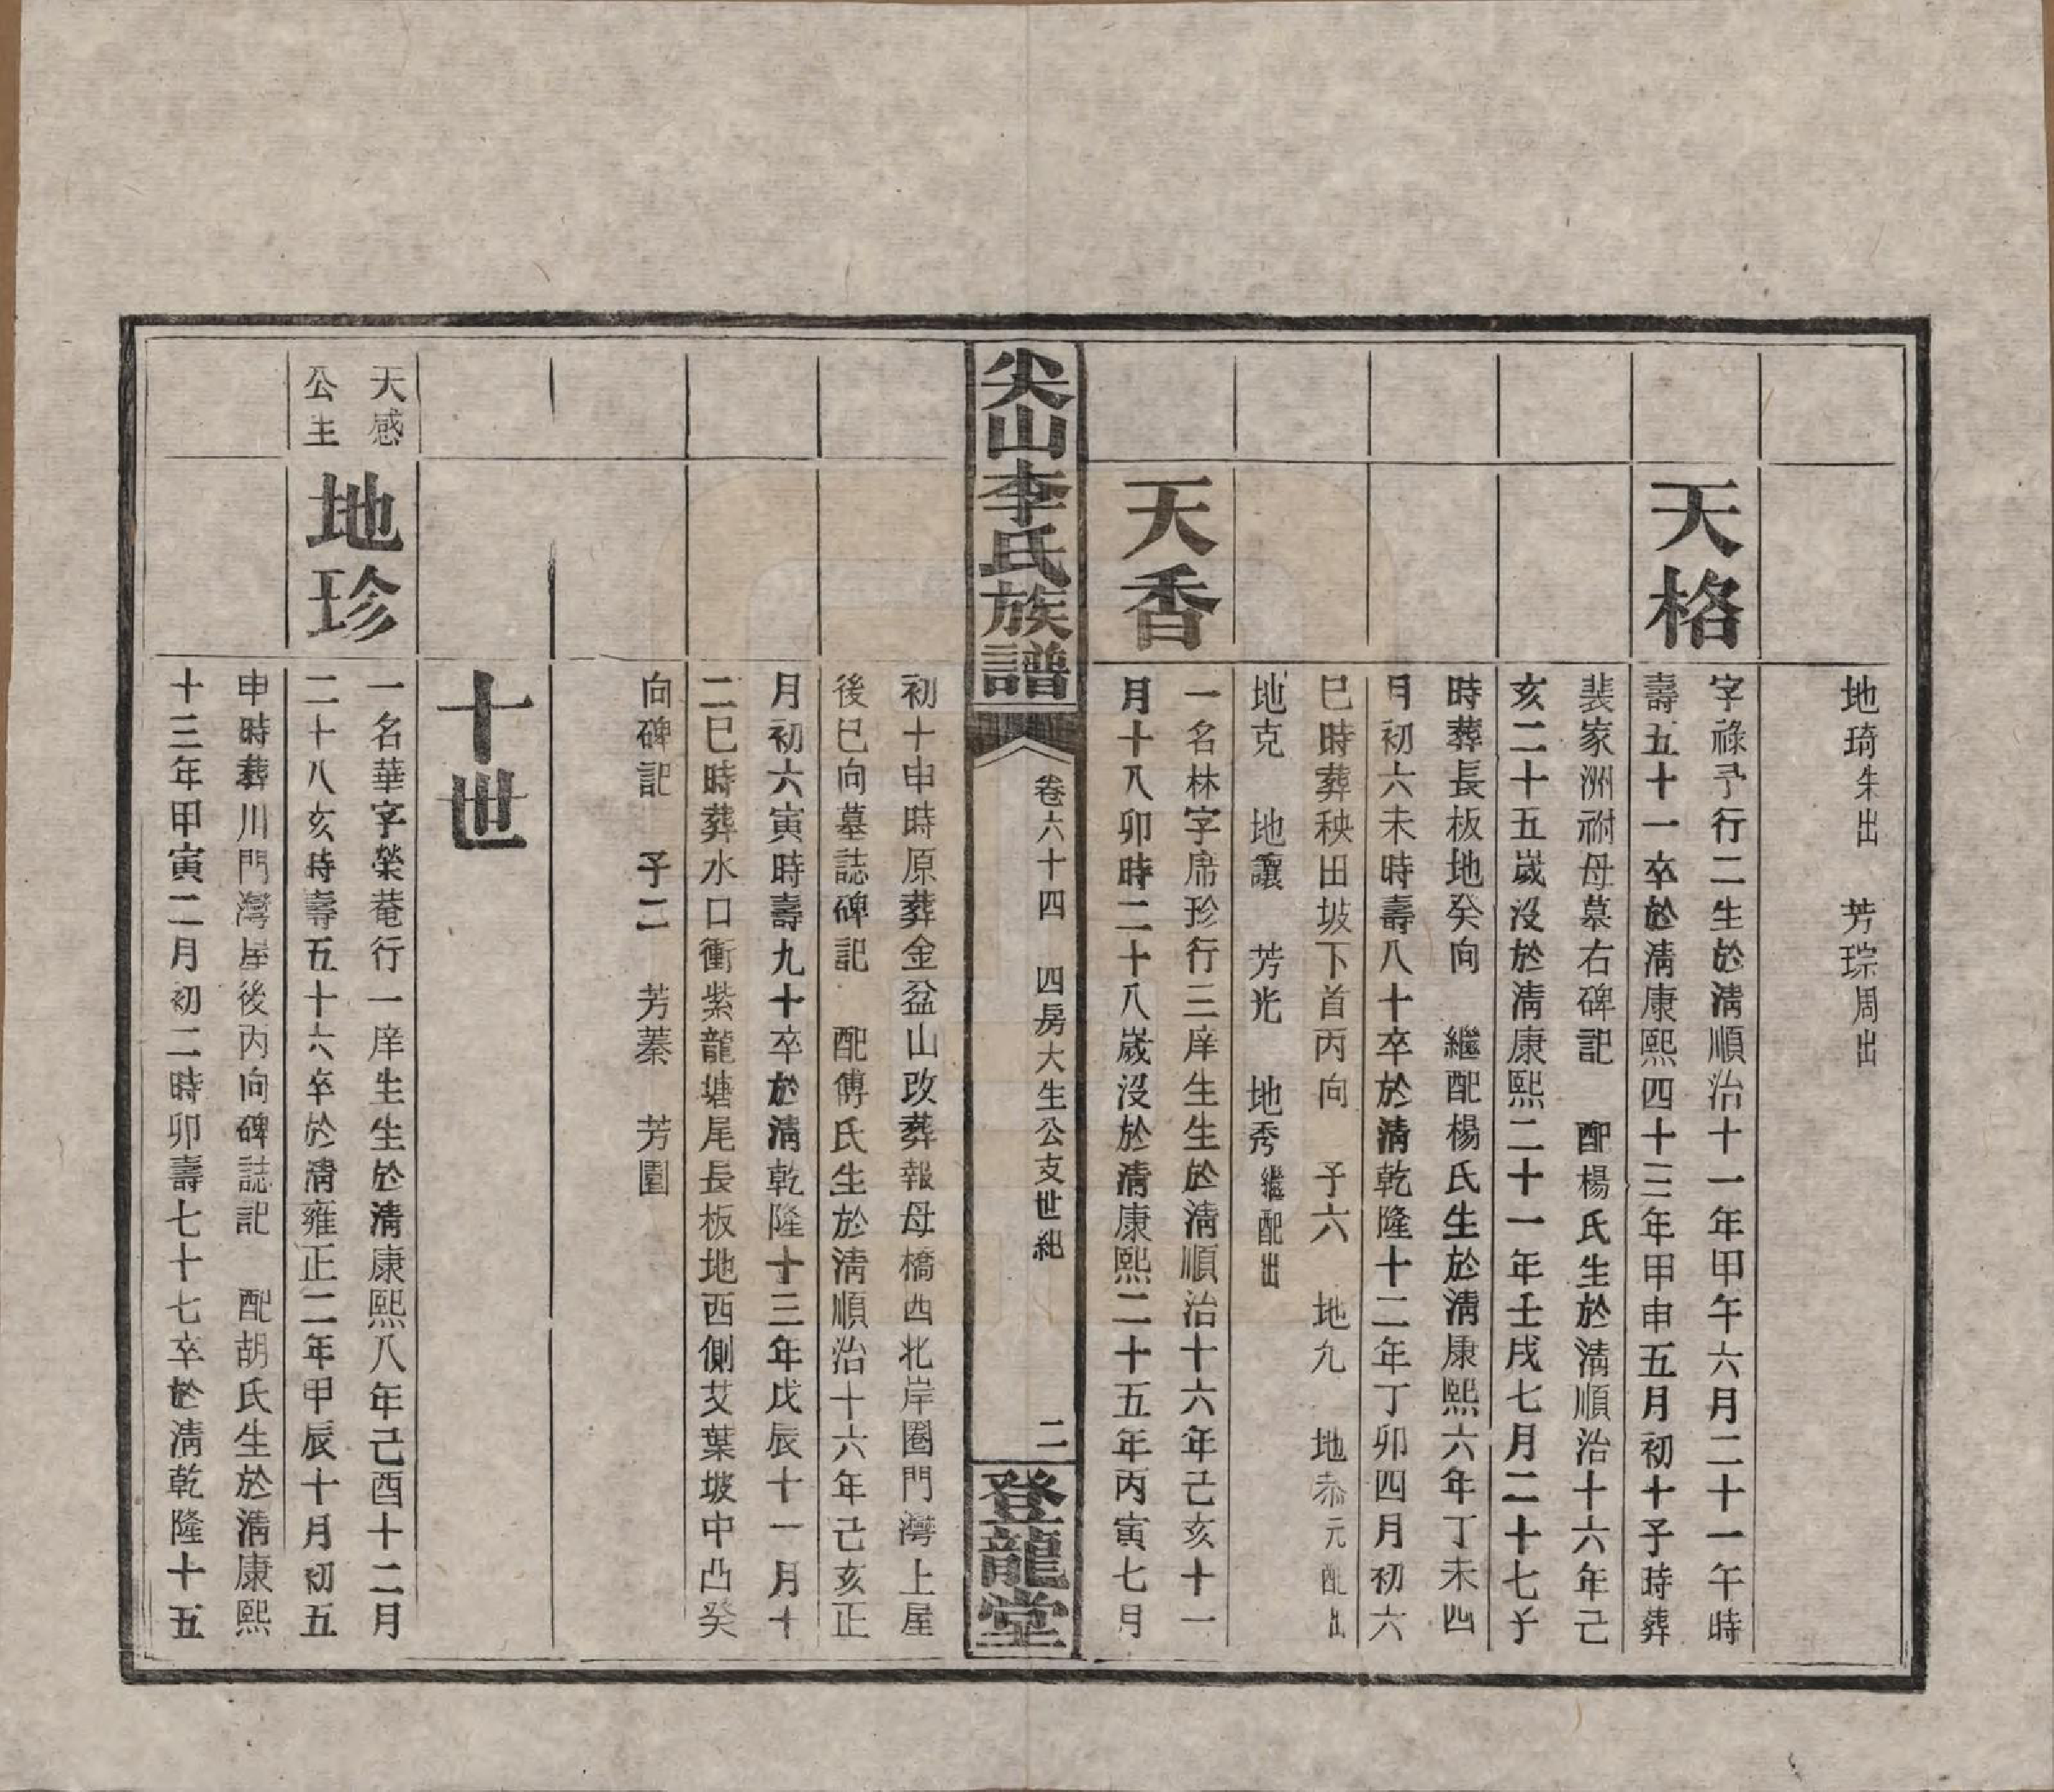 地琦朱出　芳琮周出
天格
字祿予行二生於清順治十一年甲午六月二十一午時
壽五十一卒於清康熙四十三年甲申五月初十子時葬
裴家洲祔母墓右碑記　配楊氏生於清順治十六年己
亥二十五歲沒於清康熙二十一年壬戌七月二十七子
時葬長板地癸向　繼配楊氏生於清康熙六年丁未四
月初六未時壽八十卒於清乾隆十二年丁卯四月初六
巳時葬秧田坡下首丙向　子六　地九　地泰元配出
地克　地讓　芳光　地秀繼配出
天香
一名林字席珍行三庠生生於清順治十六年己亥十一
月十八卯時二十八歲沒於清康熙二十五年丙寅七月
尖山李氏族譜
卷六十四　四房大生公支世紀
二
登龍堂
初十申時原葬金盆山改葬報母橋西北岸圈門灣上屋
後巳向墓誌碑記　配傅氏生於清順治十六年己亥正
月初六寅時壽九十卒於清乾隆十三年戊辰十一月十
二巳時葬水口衝紫龍塘尾長板地西側艾葉坡中凸癸
向碑記　子二　芳蓁　芳園
十世
天感
公主
地珍
一名華字榮菴行一庠生生於清康熙八年己酉十二月
二十八亥時壽五十六卒於清雍正二年甲辰十月初五
申時葬川門灣屋後丙向碑誌記　配胡氏生於清康熙
十三年甲寅二月初二時卯壽七十七卒於清乾隆十五